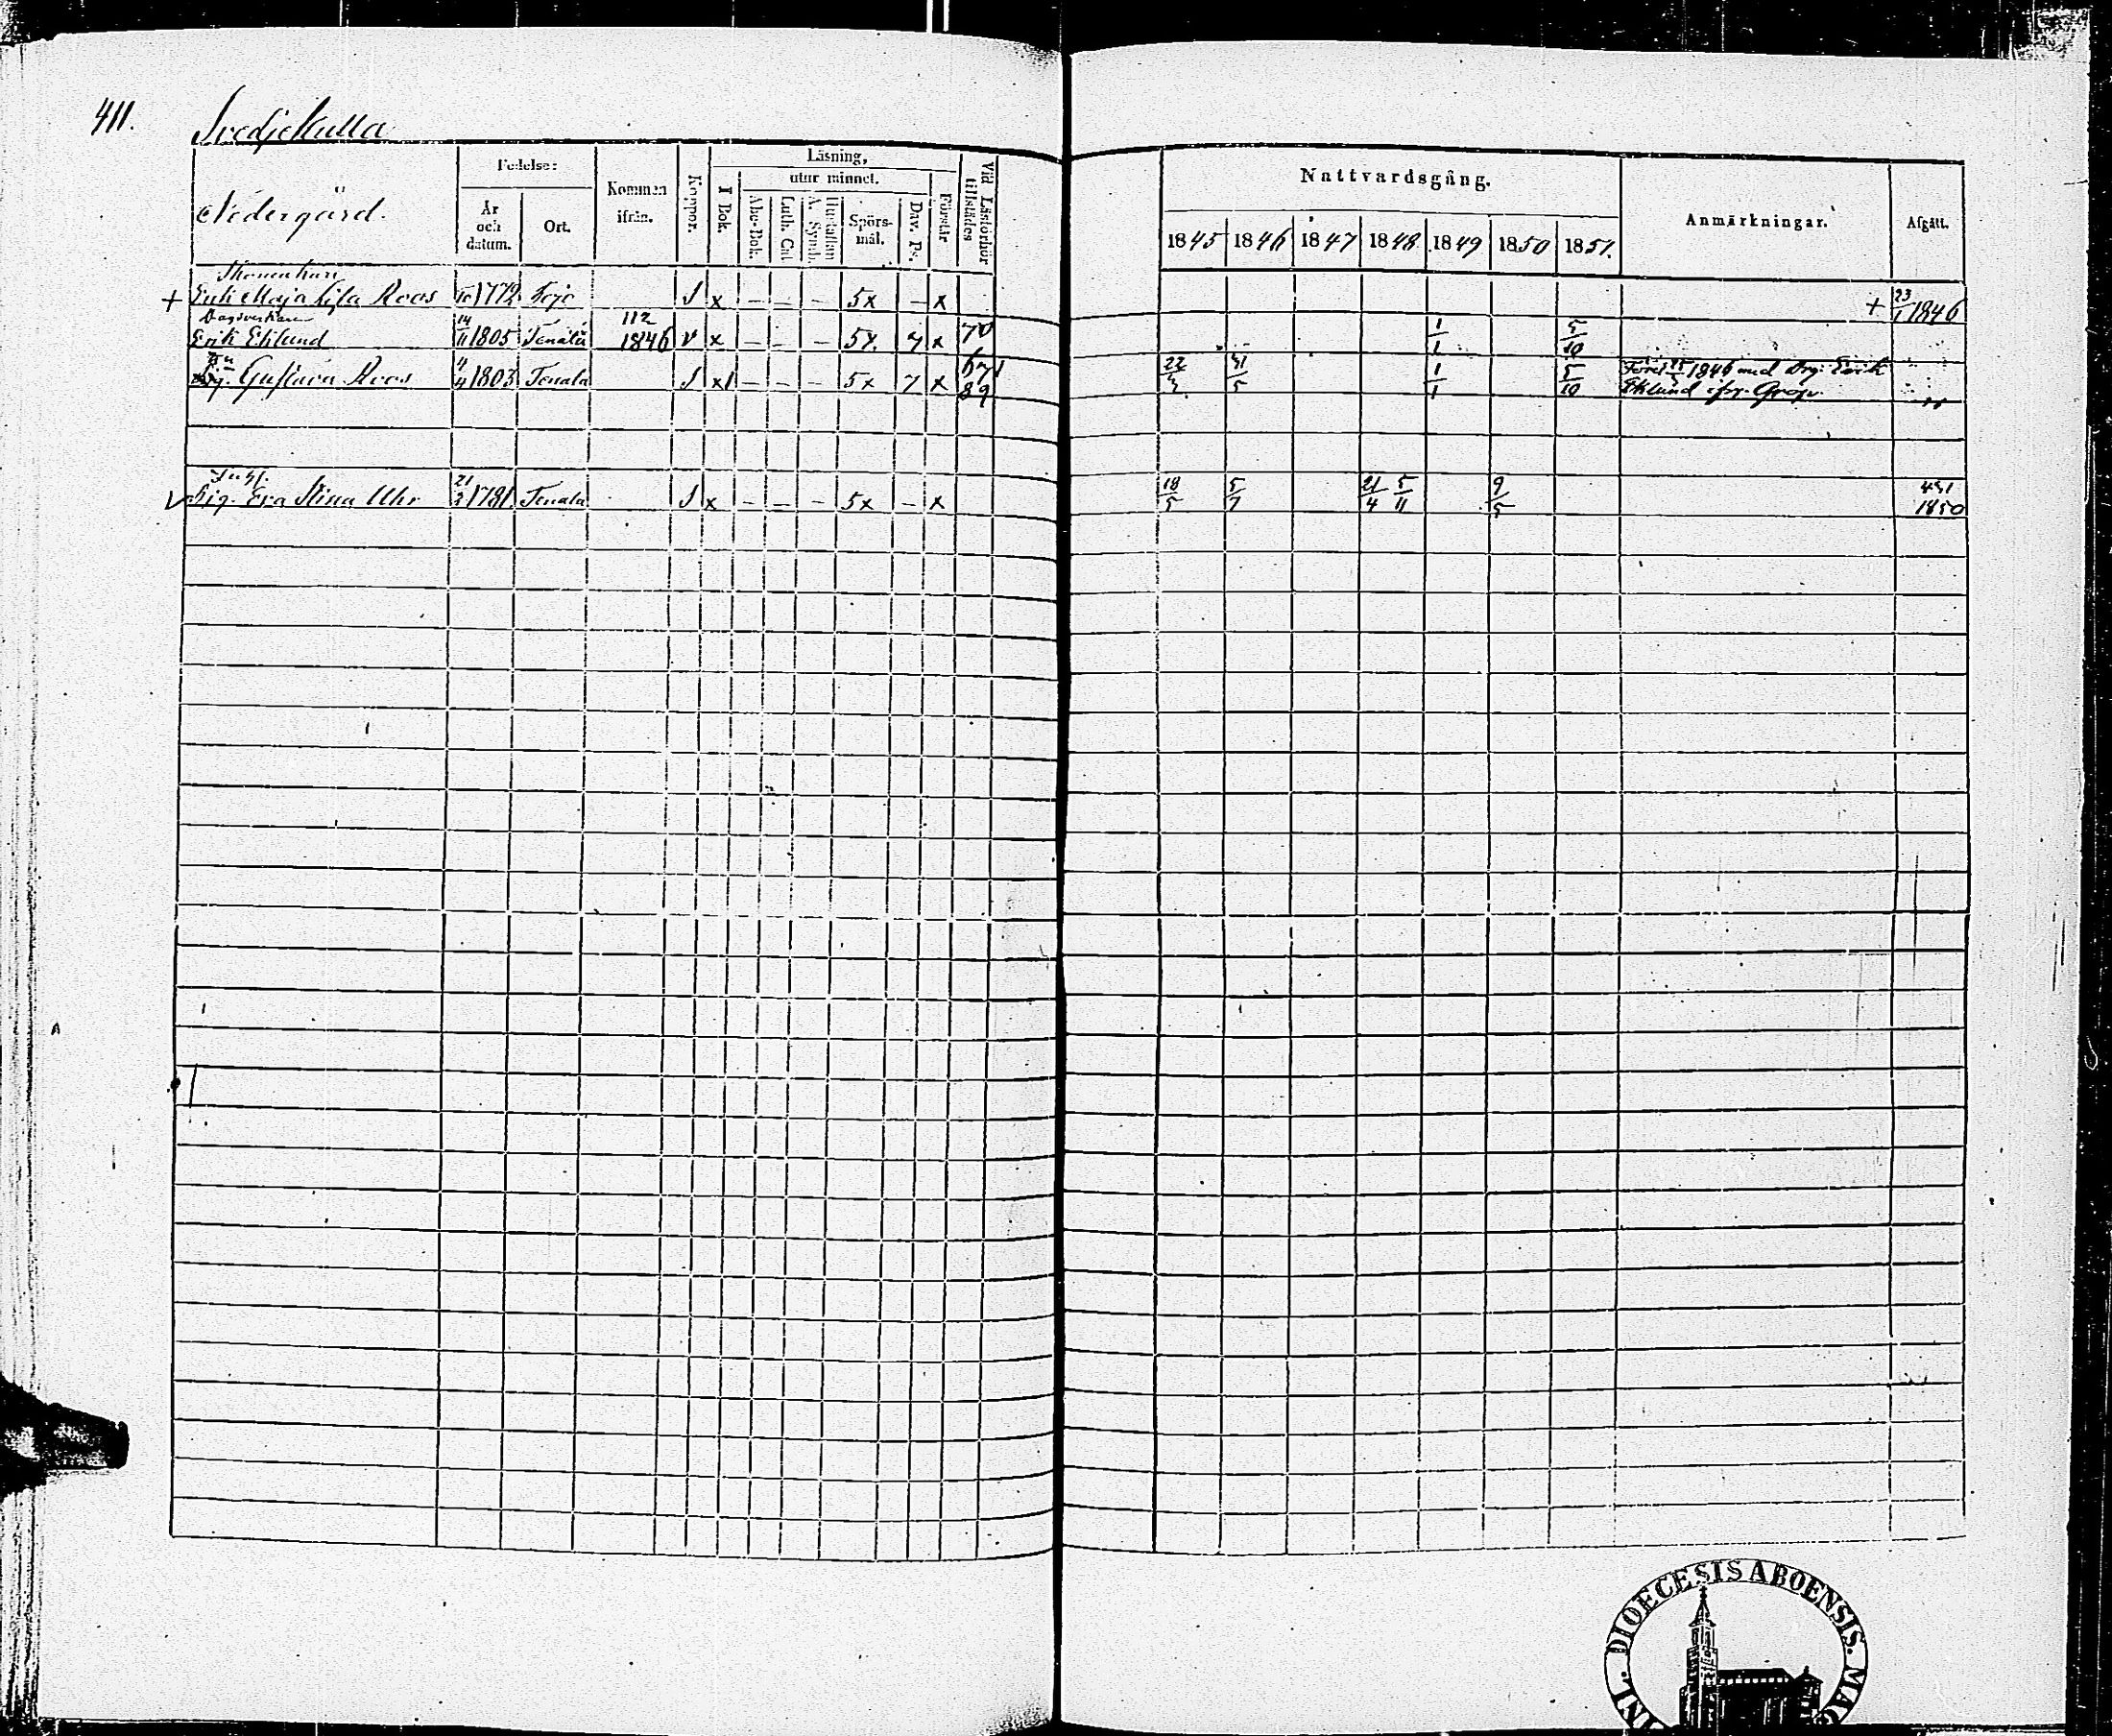 411.
Svedjekulla
Nedergård.
Fodelse:
År och datum.
Ort.
Kommen ifrån.
Koppor.
Läsning,
I Bok.
utur minnet.
Abc-Bok.
Luth. Cat.
Hustaflan A. Symb.
Spörs-mål.
Dav. Ps.
Förstår
Vid Läsförhör tillstädes
Nattvardsgång.
1845 1846 1847 1848 1849 1850 1851.
Anmärkningar.
Afgått.
+ Enk. Maja Lisa Roos 1772 Lojo S x – – – 5x – x + 23/1 1846
Dagsverkaren 112
Erik Eklund 14/11 1805 Tenala 1846 v x – – – 5x 7 x 70 1/1 5/10
Gustava Roos 1803 Tenala S x – – – 5x 7 x 67 89 22 1/1 5/10 1846 med Drg: Erik
Eklund
Pig. Eva Stina Uhr 21 1781 Tenala S x – – – 5x – x 18/5 5/7 21/4 5/11 9/5
1850
DIOECESIS ABOENSIS.